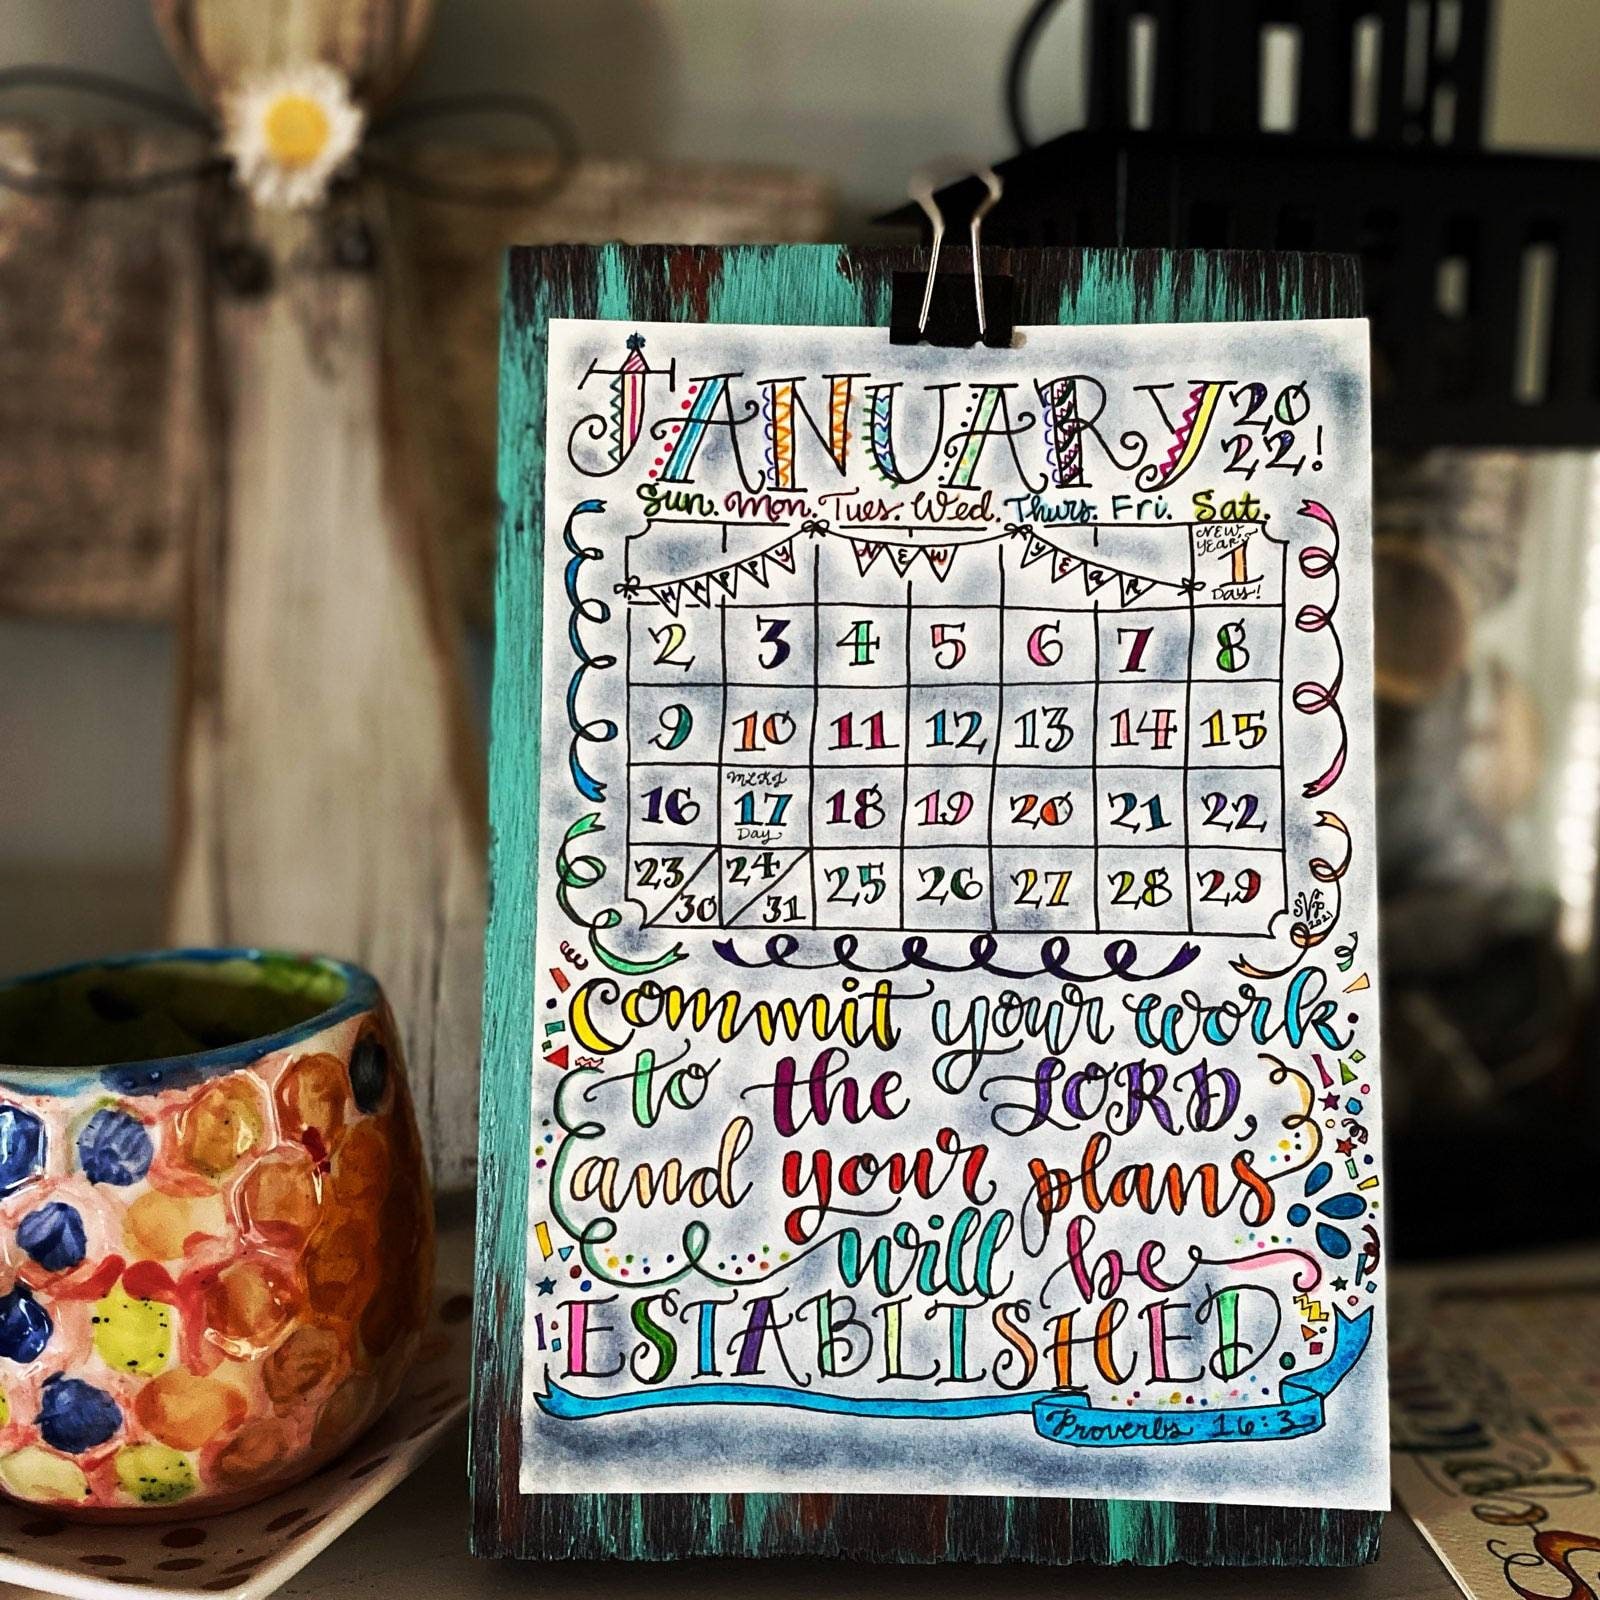 JANUARY 2022!
Sun. Mon. Tues. Wed. Thurs. Fri. Sat.
HAPPY NEW YEAR
NEW YEAR'S
1
Day!
2 3 4 5 6 7 8
9 10 11 12 13 14 15
MLKJ
16 17 18 19 20 21 22
Day
23/30 24/31 25 26 27 28 29
SVP
2021
Commit your work
to the LORD,
and your plans
will be
ESTABLISHED.
Proverbs 16:3